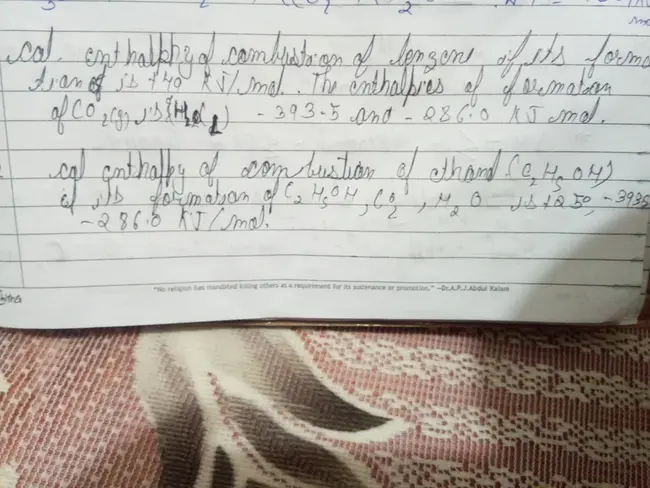 cal. enthalphy of combustion of benzene if its forma
tion of is +49 KJ/mol. The enthalpies of formation
of CO2(g) is {H2O(L) -393.5 and -286.0 KJ mol.
cal enthalpy of combustion of ethanol (C2H5OH)
if its formation of C2H5OH, CO2, H2O is +250, -393.5
-286.0 KJ/mol.
"No religion has mandated killing others as a requirement for its sustenance or promotion." –Dr.A.P.J.Abdul Kalam